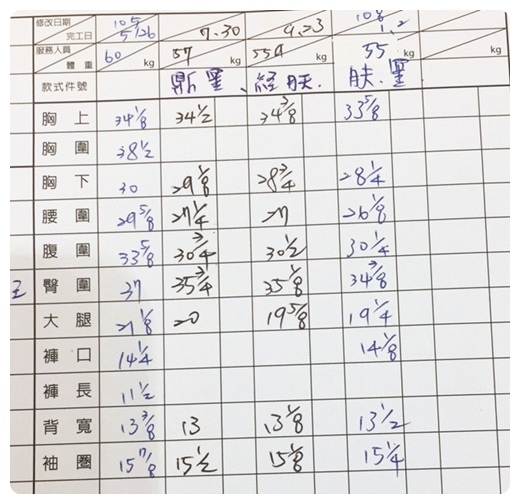 修改日期 105 108
完工日 5/26 7.30 9.23 1.2
服務人員
體重 60 kg 57 kg 55.9 kg 55 kg kg
款式件號
胸上 34 1/8 34 1/2 34 3/8 33 5/8
胸圍 38 1/2
胸下 30 29 1/8 28 3/4 28 1/4
腰圍 29 5/8 27 1/4 27 26 1/8
腹圍 33 5/8 30 3/4 30 1/2 30 1/4
臀圍 37 35 3/4 35 1/8 34 3/8
大腿 21 1/8 20 19 5/8 19 1/4
褲口 14 1/4 14 1/8
褲長 11 1/2
背寬 13 3/8 13 13 1/8 13 1/2
袖圈 15 7/8 15 1/2 15 1/8 15 1/4